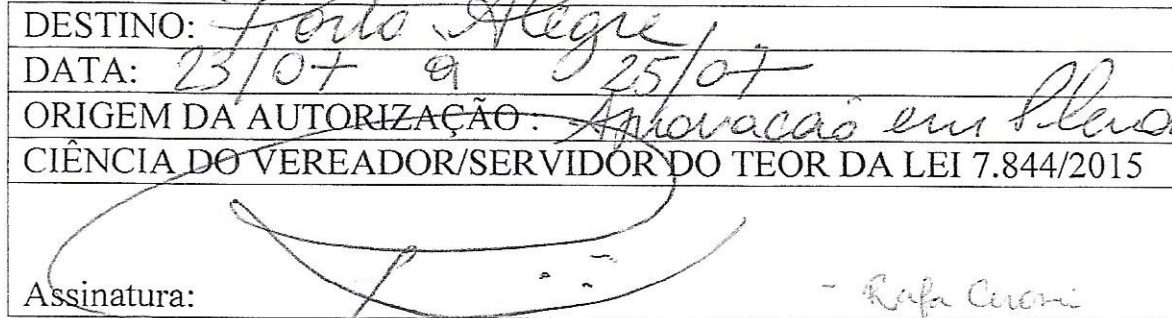 DESTINO: Porto Alegre
DATA: 23/07 a 25/07
ORIGEM DA AUTORIZAÇÃO : Aprovacaõ em Plena
CIÊNCIA DO VEREADOR/SERVIDOR DO TEOR DA LEI 7.844/2015
Assinatura: - Rafa Ceroni